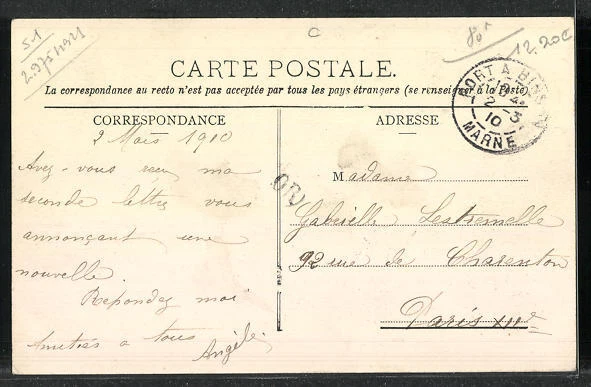 C
51
2.975H921
80f
12.20€
CARTE POSTALE.
La correspondance au recto n'est pas acceptée par tous les pays étrangers (se renseigner à la Poste).
CORRESPONDANCE
2 Mars 1910
Avez-vous reçu ma
seconde lettre vous
annonçant une
nouvelle.
Repondez moi
Amitiés à tous
Angèle.
ADRESSE
Madame
Gabrielle Lestremelle
92 rue de Charenton
Paris XIIe
OR
PORT A BINSON
10
2 -3
10
MARNE